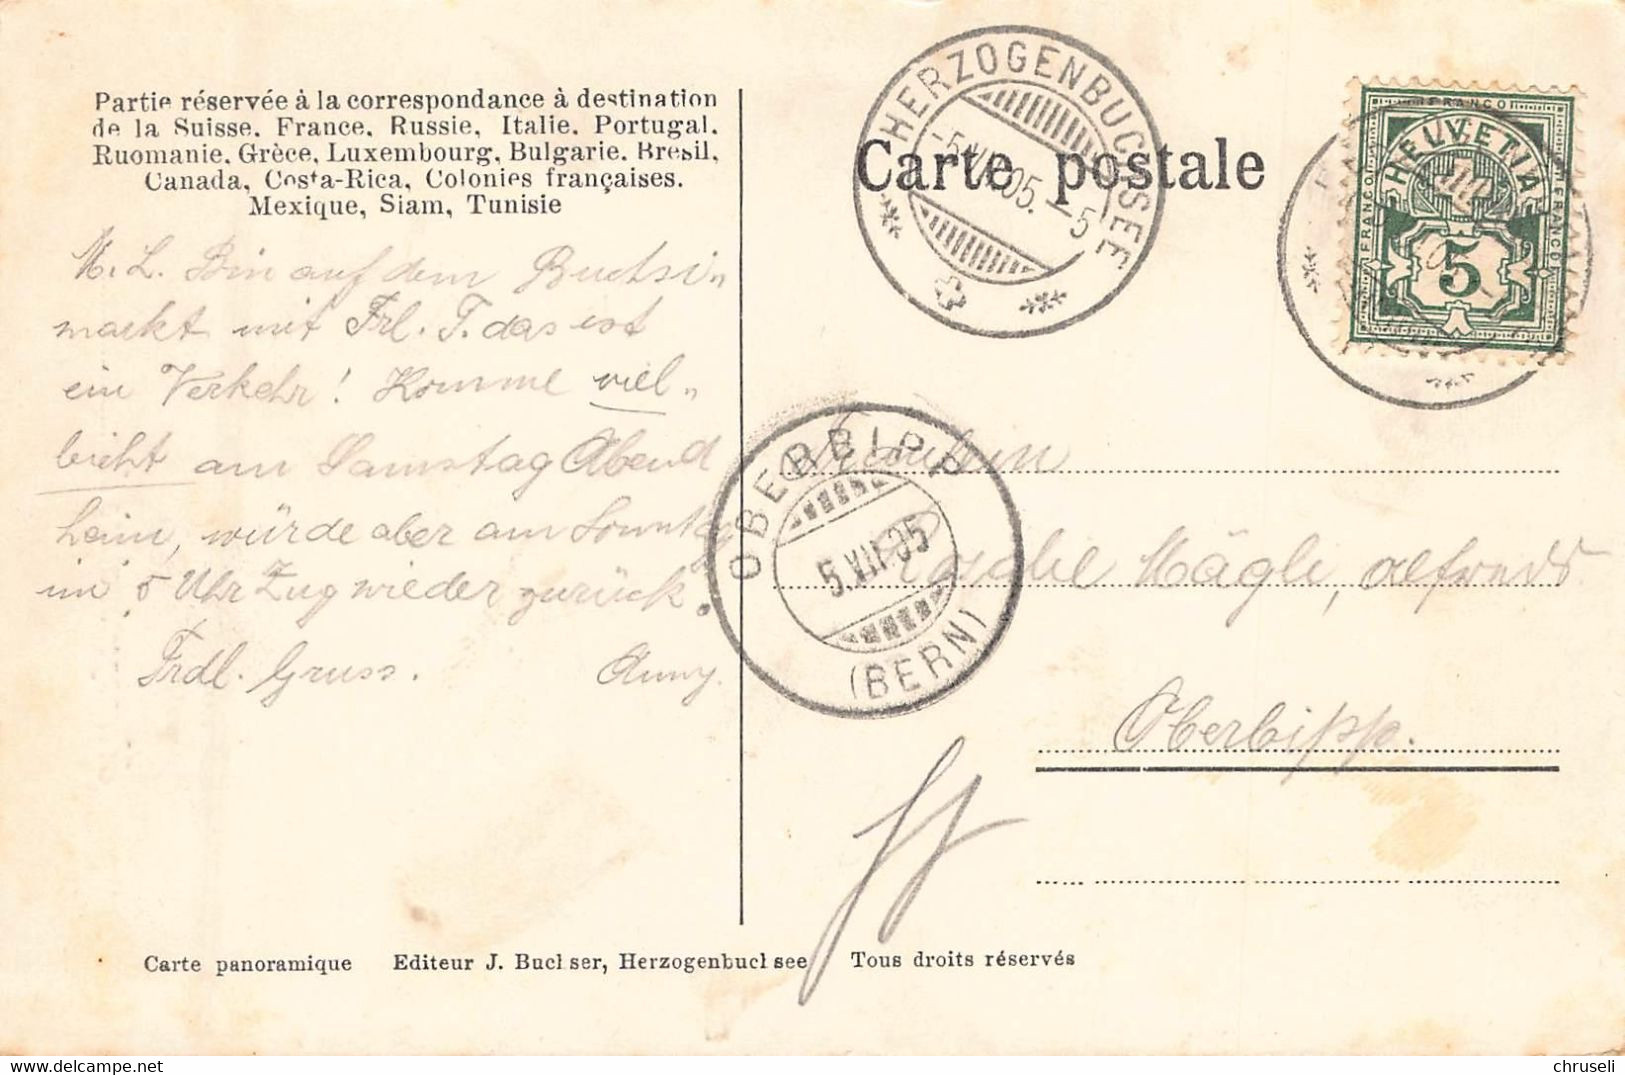 Partie réservée à la correspondance à destination
de la Suisse. France. Russie, Italie. Portugal.
Ruomanie. Grèce, Luxembourg, Bulgarie. Bresil,
Canada, Costa-Rica, Colonies françaises.
Mexique, Siam, Tunisie
M. L. Bin auf dem Buchsi„
markt mit Frl. T. das ist
ein Verkehr! Komme viel„
leicht am Samstag Abend
heim, würde aber am Sonntag
im 5 Uhr Zug wieder zurück.
Frdl. Gruss. Anny.
HERZOGENBUCHSEE
-5.XII.05.-5
Carte postale
FRANCO
HELVETIA
FRANCO
FRANCO
5
OBERBIPP
5.XII.05
(BERN)
Fräulein
Mägli,
Oberbipp.
Carte panoramique Editeur J. Buchser, Herzogenbuchsee Tous droits réservés
chruseli